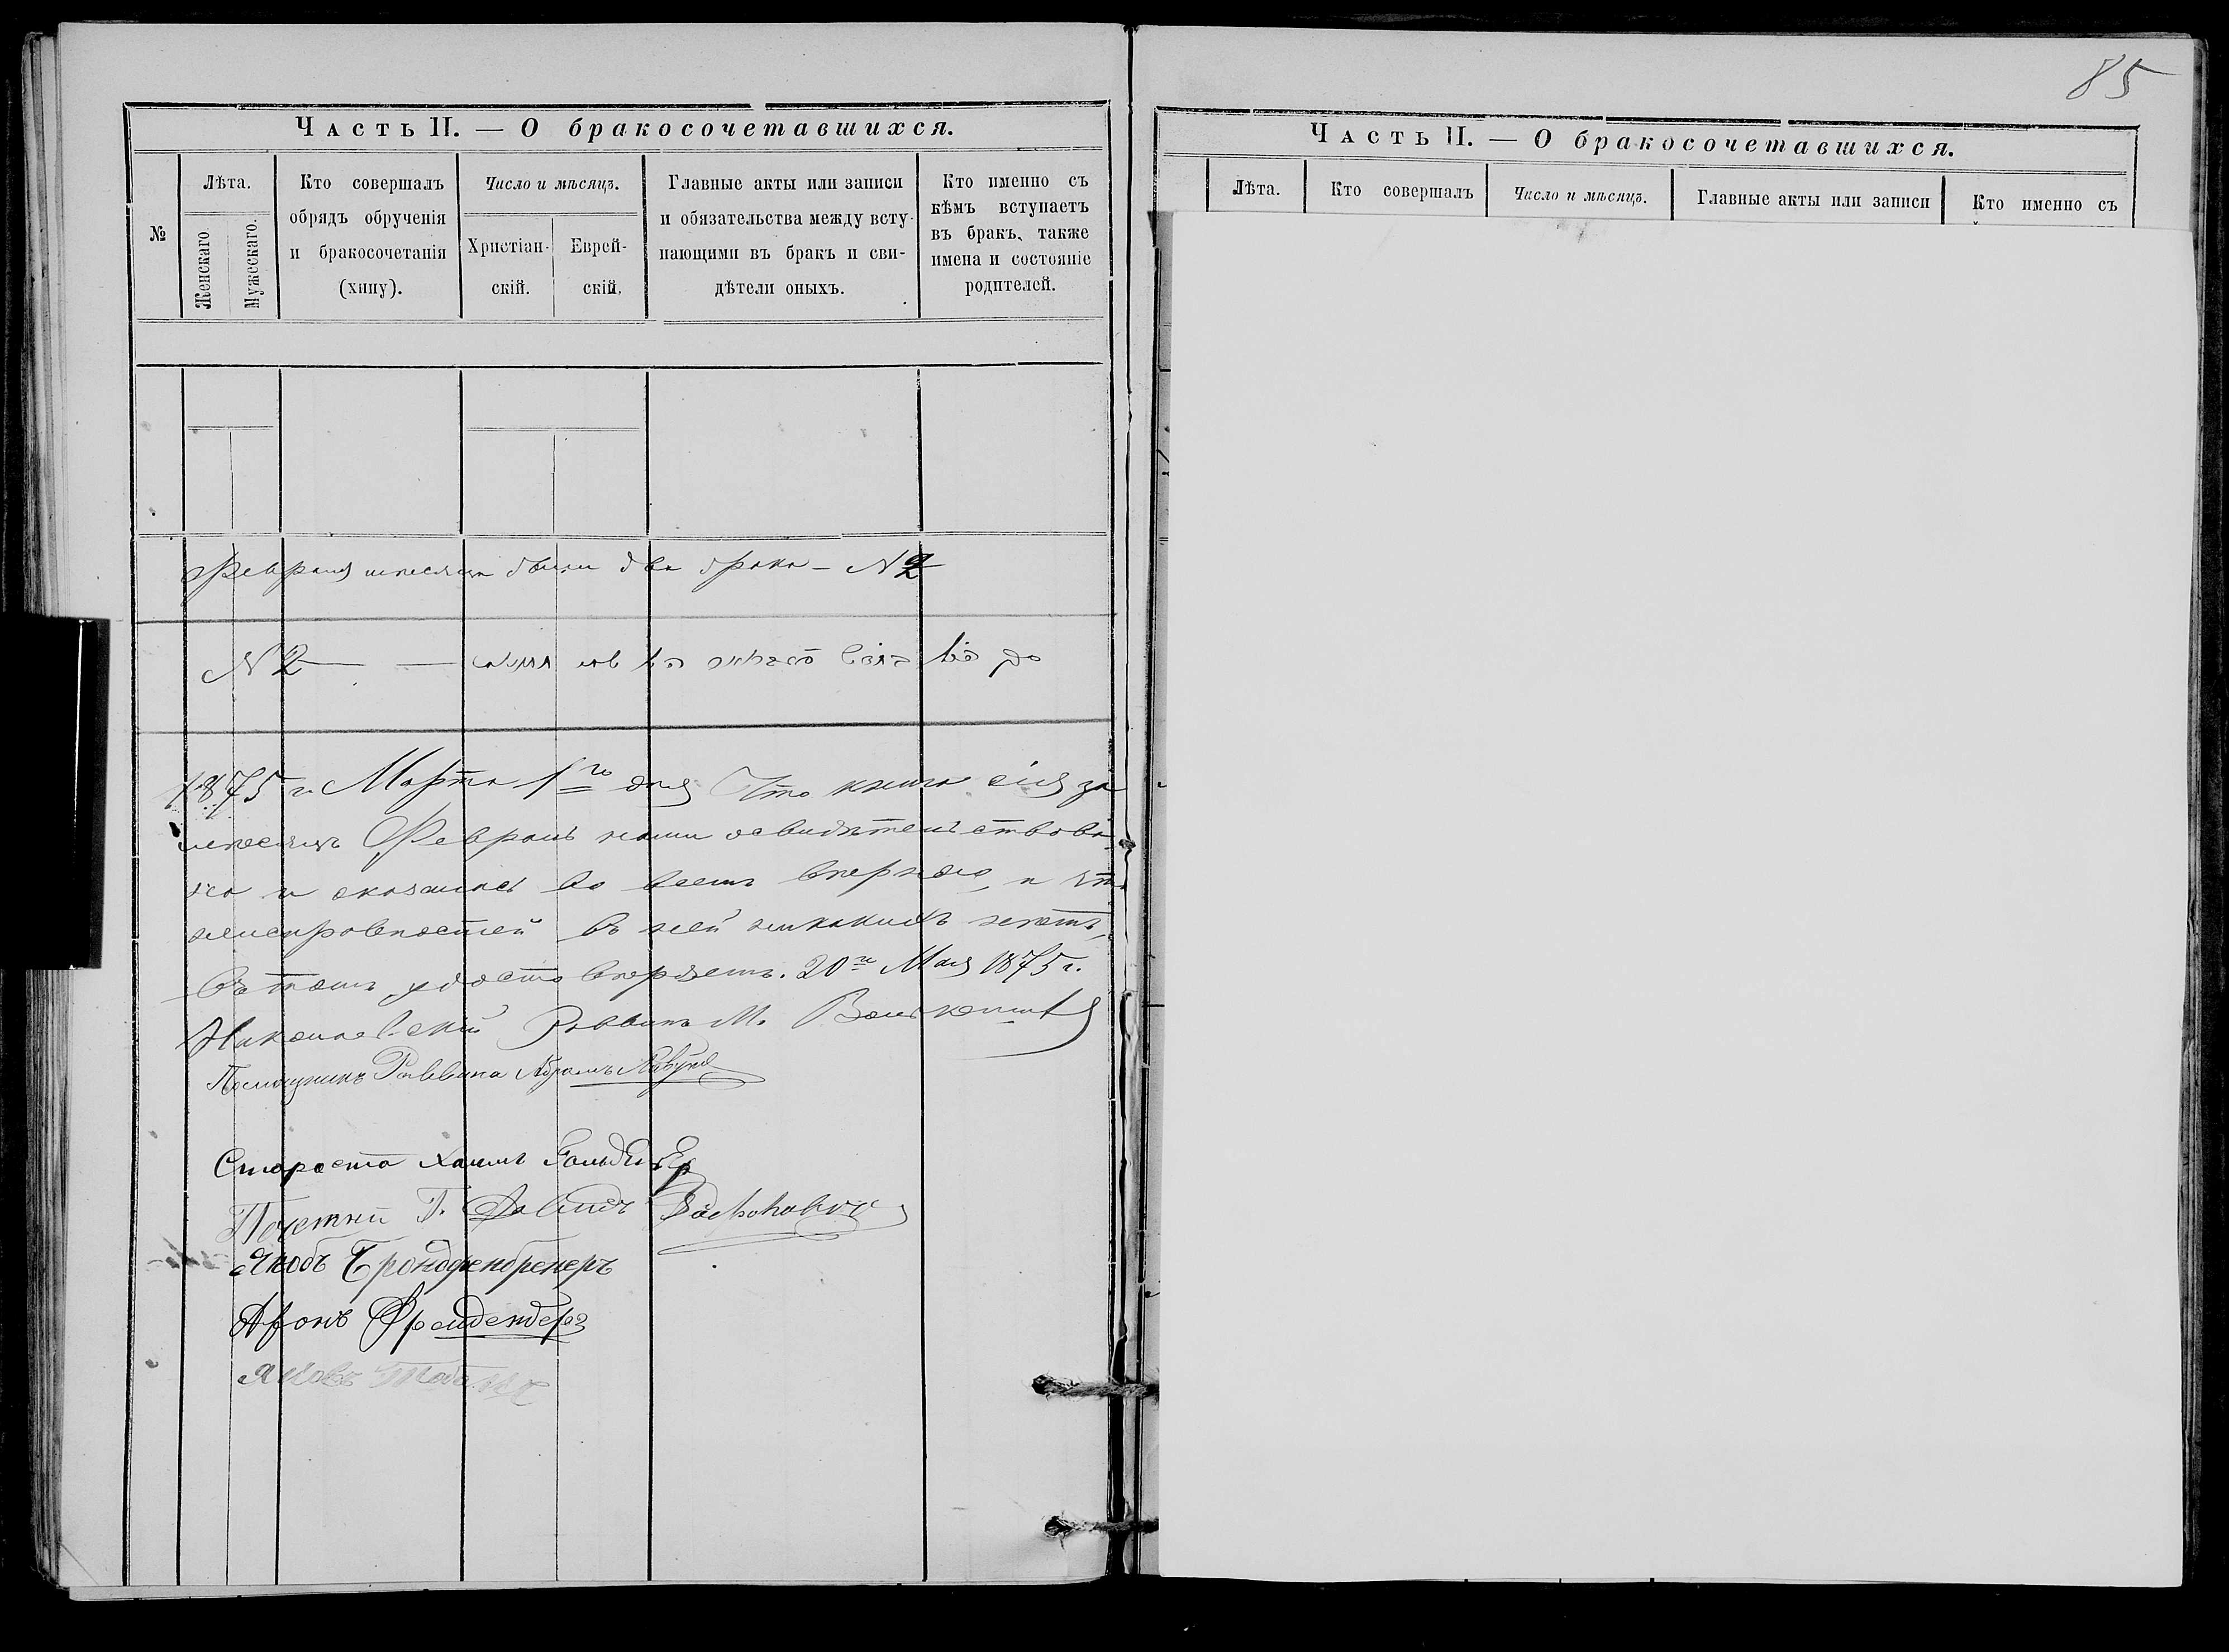 85
Часть II. — О бракосочетавшихся.
№
Лѣта.
Женскаго
Мужескаго.
Кто совершалъ
обрядъ обрученія
и бракосочетанія
(хипу).
Число и мѣсяцъ.
Христіан-
скій.
Еврей-
скій,
Главные акты или записи
и обязательства между всту-
пающими въ бракъ и сви-
дѣтели оныхъ.
Кто именно съ
кѣмъ вступаетъ
въ бракъ, также
имена и состояніе
родителей.
№
Февраля мѣсяца были два брака — N 2
N 2
1875 г. Марта 1го дня Что книга сія за
мѣсяцъ Февраль нами освидѣтельствова-
на и оказалась во всемъ вѣрною, и что
неисправностей въ ней никакихъ нетъ,
въ томъ удостовѣряемъ. 20го Мая 1875 г.
Николаевскій Раввинъ М.
Помощникъ Раввина Абрамъ
Староста Хаимъ
Почетний Г. Давидъ
Якобъ
Аронъ
Яковъ
Часть II. — О бракосочетавшихся.
Лѣта.
Кто совершалъ
Число и мѣсяцъ.
Главные акты или записи
Кто именно съ